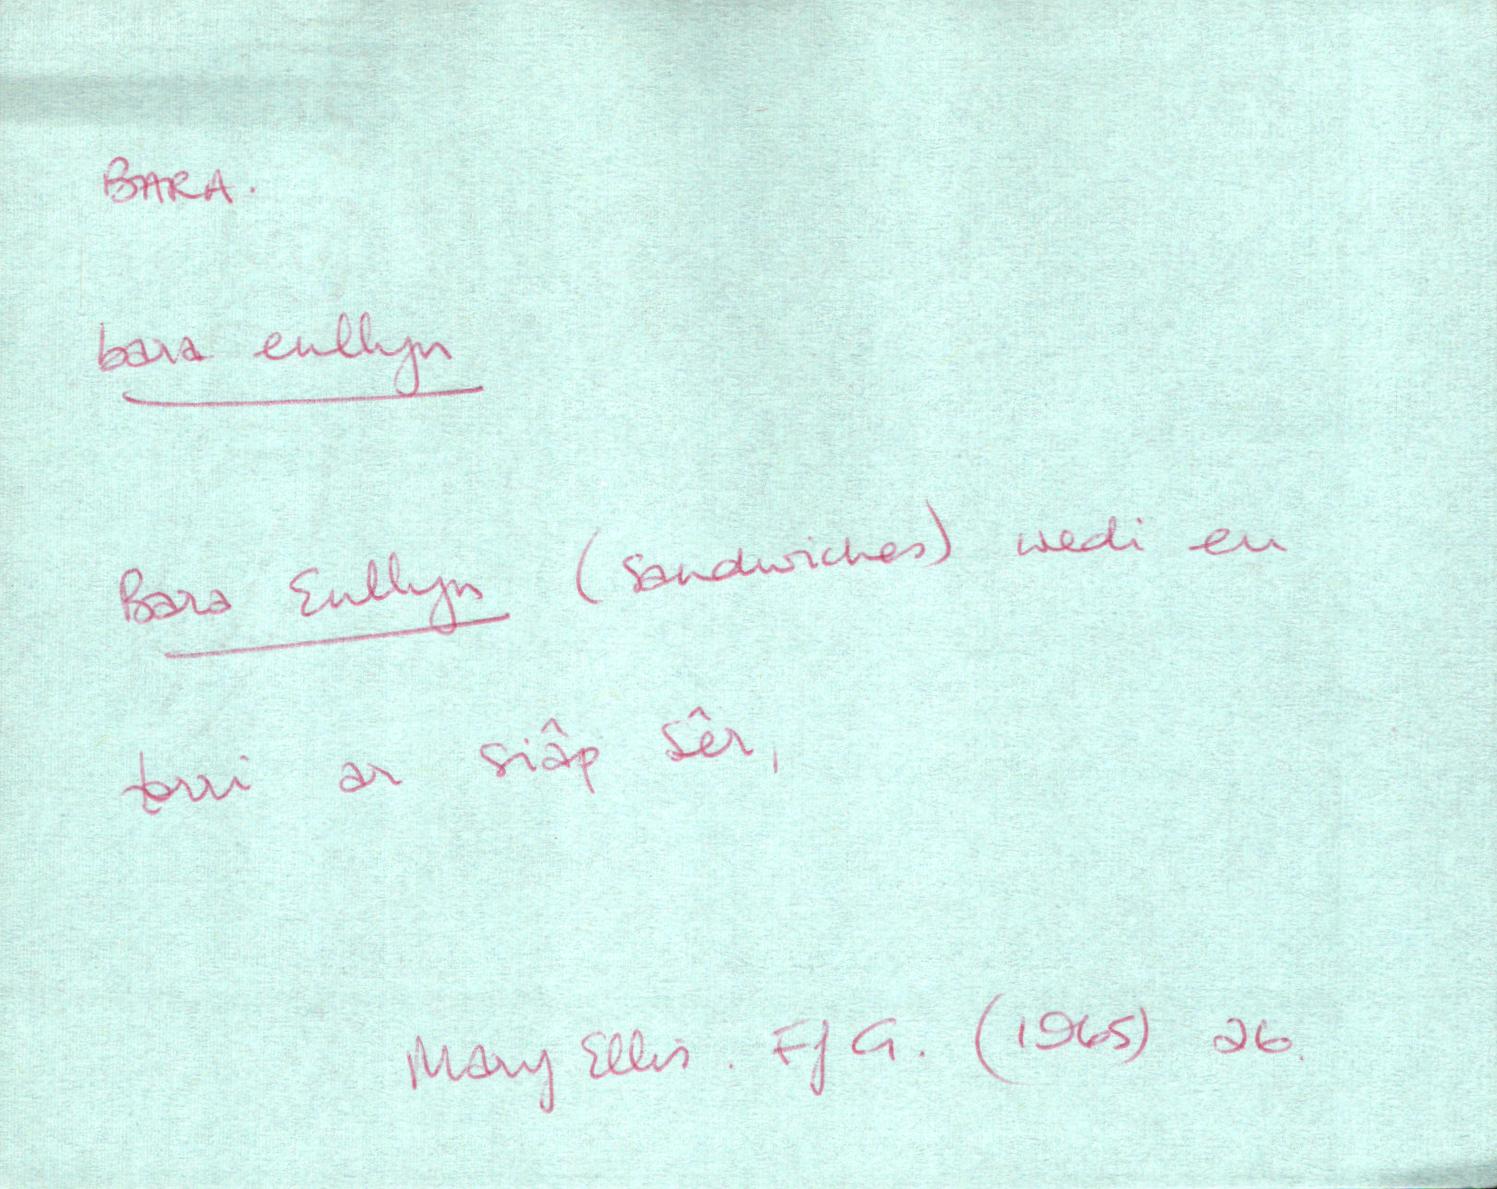 BARA.
bara enllyn
Bara Enllyn (sandwiches) wedi eu
torri ar siâp sêr,
Mary Ellis. FfG. (1965) 26.